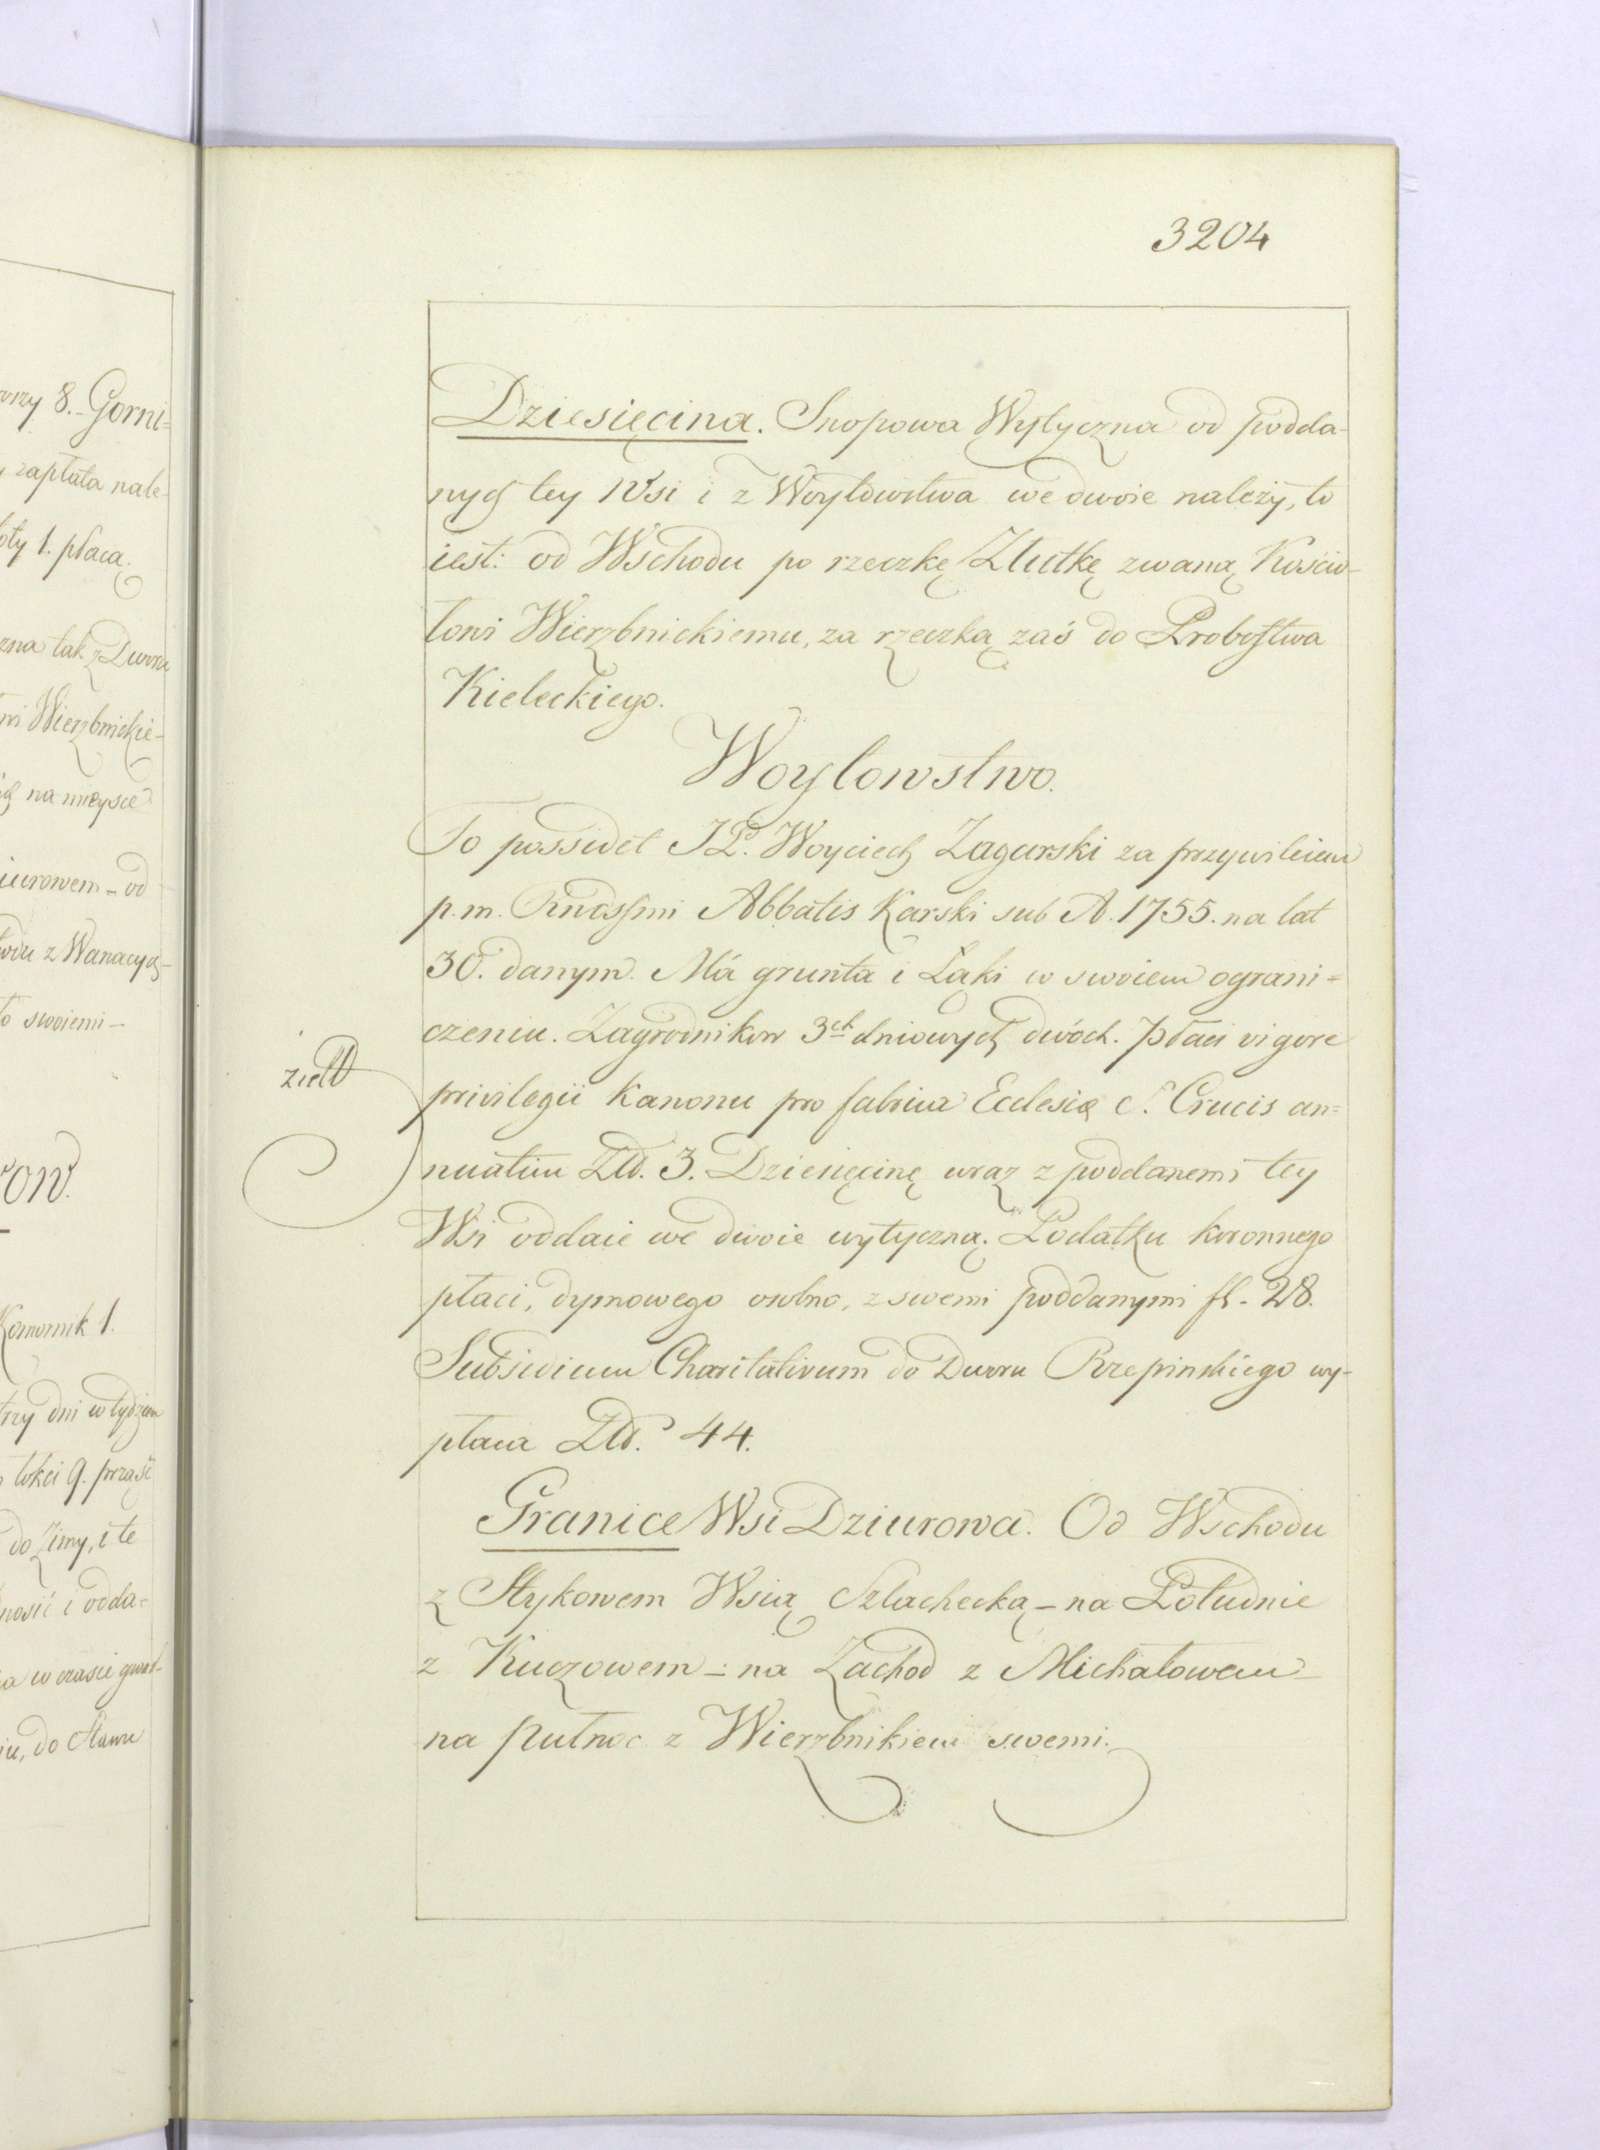 3204
Dziesięcina. Snopowa Wytyczna od podda-
nych tey Wsi i z Woytowstwa we dwoie należy, to
iest: od Wschodu po rzeczkę Złutkę zwaną Kościo-
łowi Wierzbnickiemu, za rzeczką zaś do Probostwa
Kieleckiego.
Woytowstwo.
To possidet JP. Woyciech Zagurski za przywileiem
p. m. Rndssmi Abbatis Karski sub A. 1755. na lat
30. danym. Má grunta i Łąki w swoiem ograni=
czeniu. Zagrodnikow 3ch dniowych dwóch. Płaci vigore
privilegii Kanonu pro fabrica Ecclesiæ S. Crucis an=
nuatim Zł. 3. Dziesięcinę wraz z poddanemi tey
Wsi oddaie we dwoie wytyczną. Podatku koronnego
płaci, dymowego osobno, z swemi poddanymi fl. 28.
Subsidium Charitativum do Dworu Rzepinskiego wy-
płaca Zł. 44.
Granice Wsi Dziurowa. Od Wschodu
z Stykowem Wsią Szlachecką – na Południe
z Kuczowem – na Zachod z Michałowem –
na pułnoc z Wierzbnikiem swemi.
orzy 8. Gorni=
zapłata nale-
oty 1. płacą.
zna tak z Dworu
wi Wierzbnickie-
na mieysce
iurowem – od
odu z Wanacych –
o swoiemi –
row.
Komornik 1.
trzy dni w tydzien
łokci 9. prząść
do Zimy, i te
nosić i odda=
a w czasie gwał-
iu, do Stawu